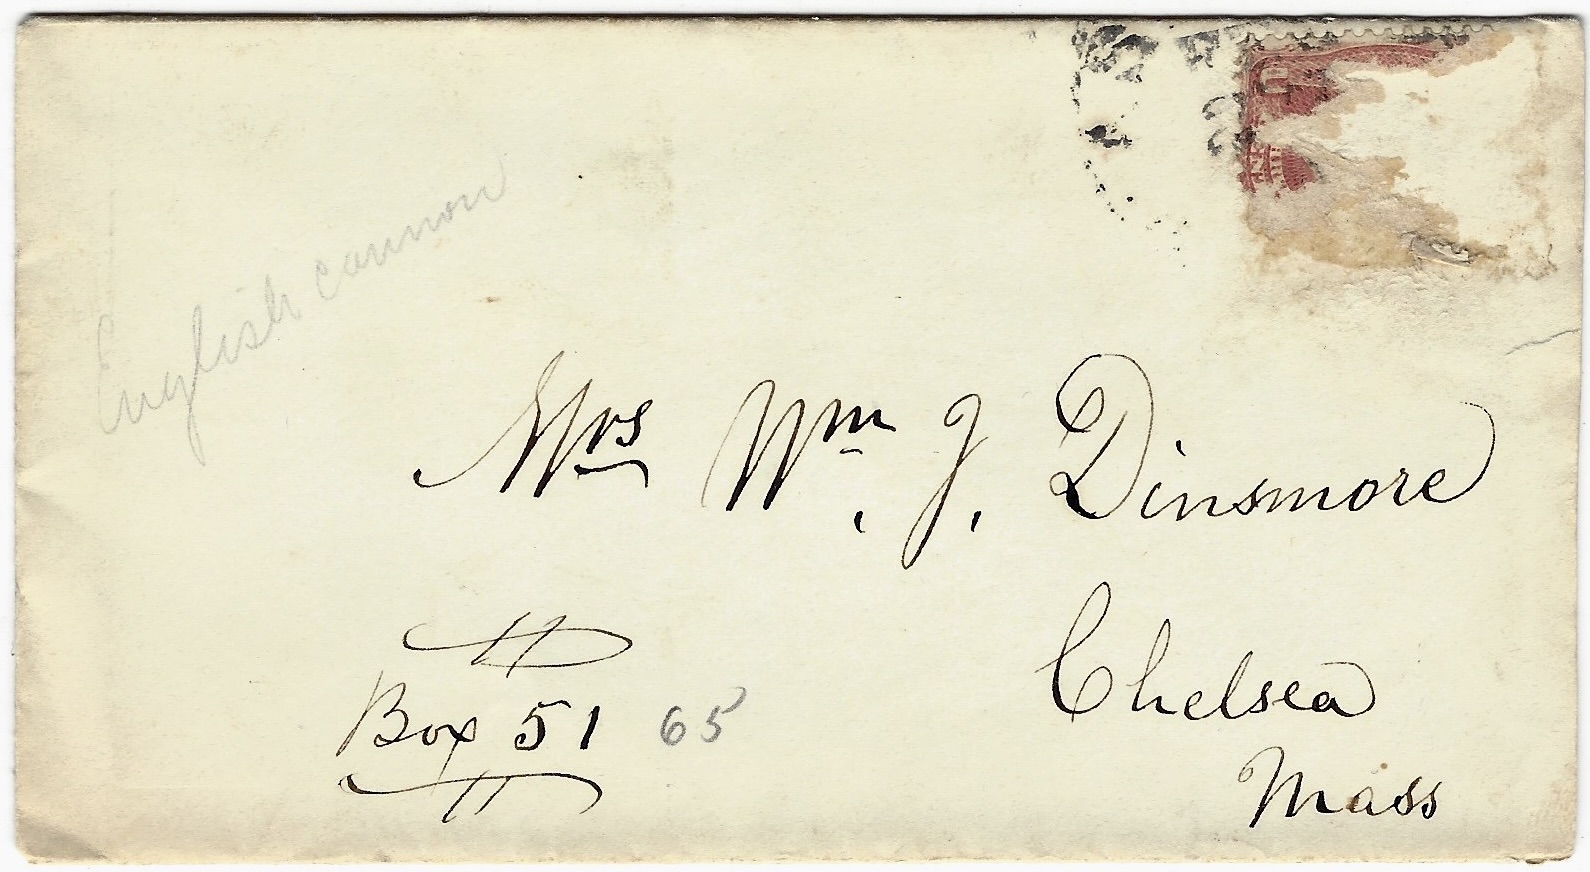 English cannon
Mrs Wm. J. Dinsmore
Chelsea
Mass
Box 51 65